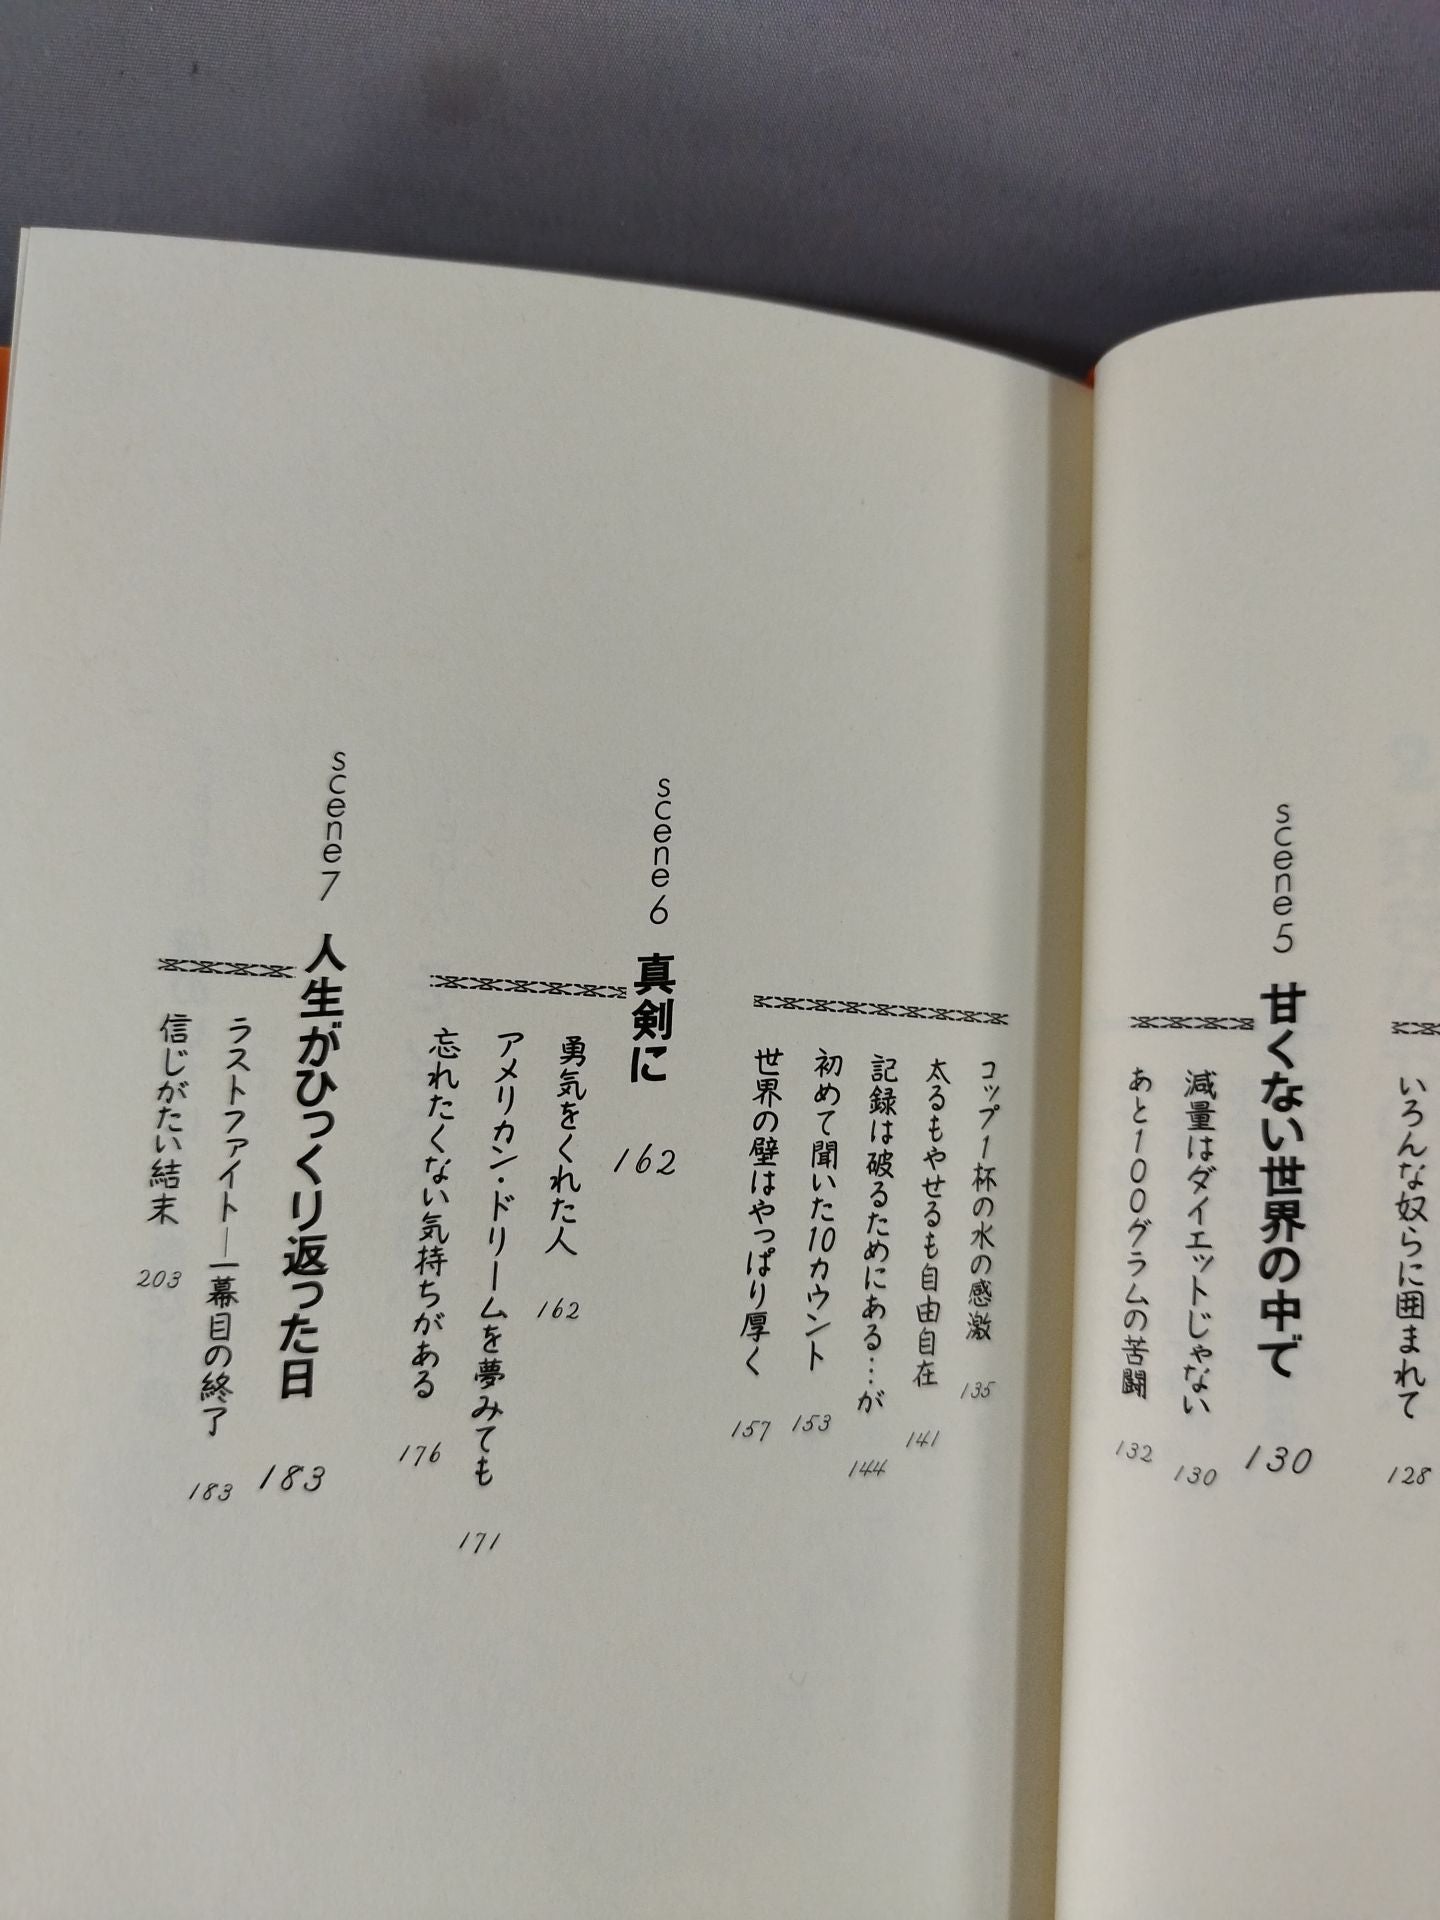 いろんな奴らに囲まれて 128
scene5 甘くない世界の中で 130
減量はダイエットじゃない 130
あと100グラムの苦闘 132
コップ1杯の水の感激 135
太るもやせるも自由自在 141
記録は破るためにある…が 144
初めて聞いた10カウント 153
世界の壁はやっぱり厚く 157
scene6 真剣に 162
勇気をくれた人 162
アメリカン・ドリームを夢みても 171
忘れたくない気持ちがある 176
scene7 人生がひっくり返った日 183
ラストファイト―一幕目の終了 183
信じがたい結末 203